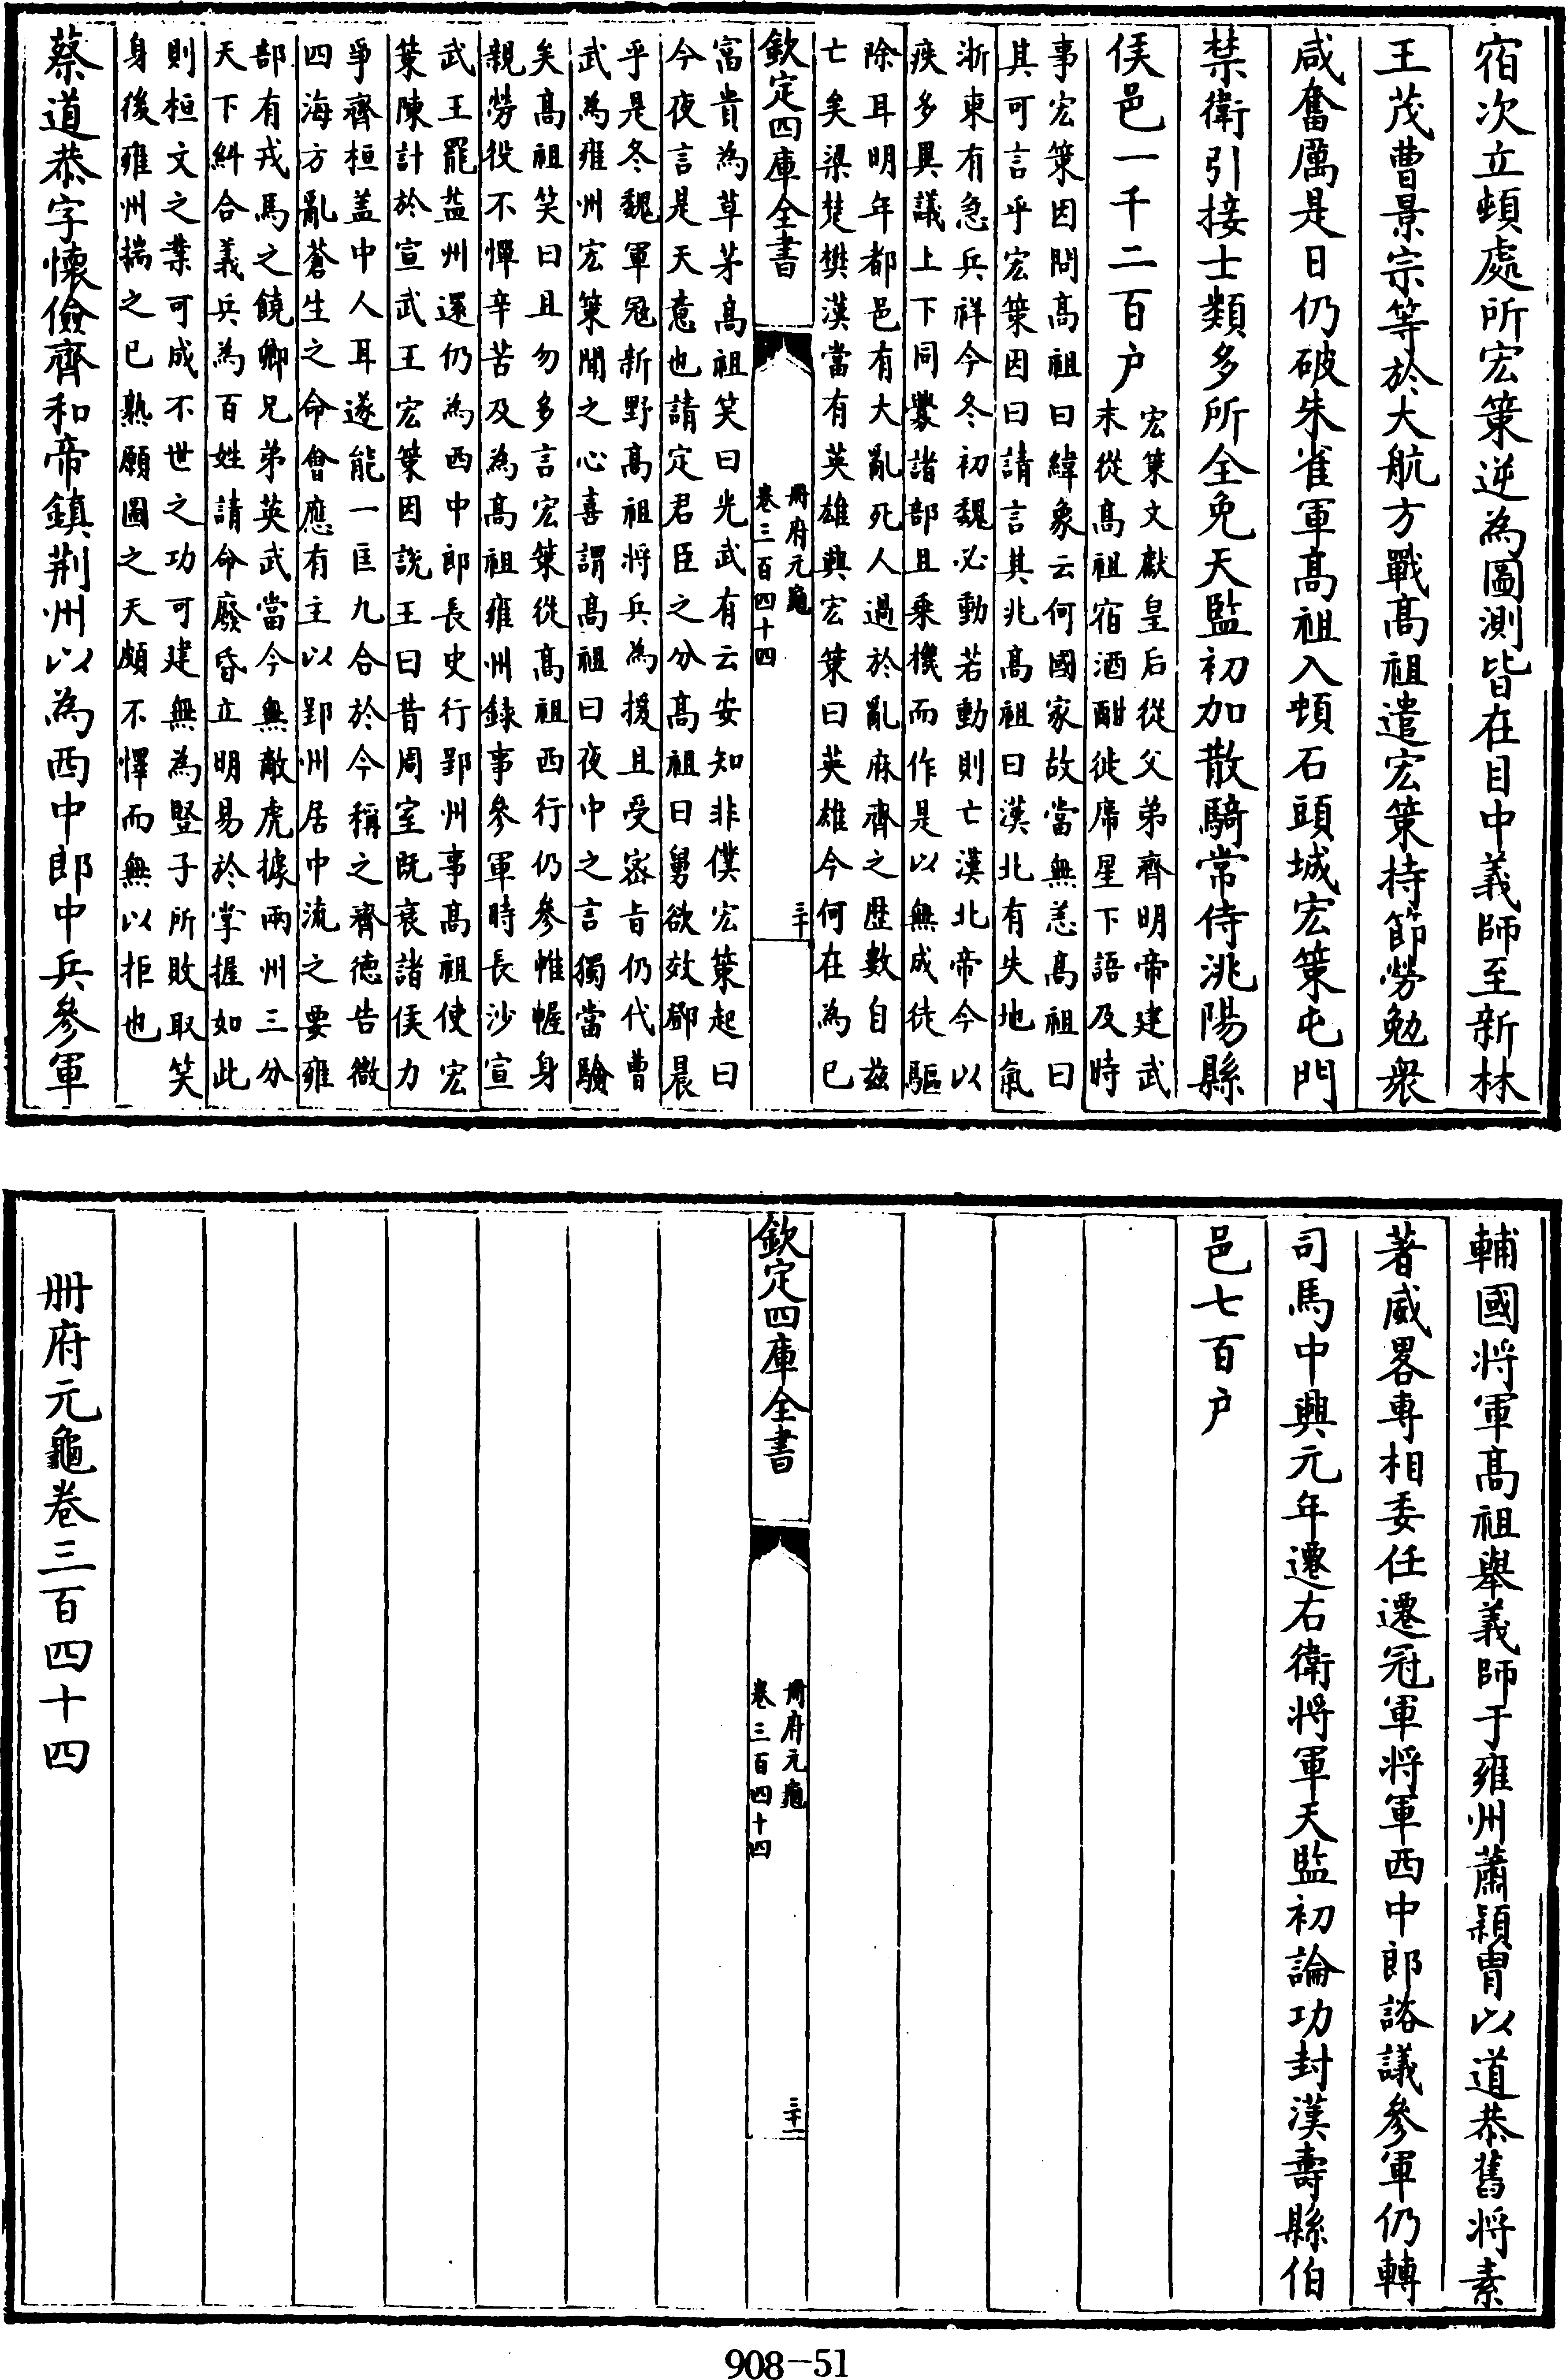 宿次立頓處所宏策逆為圖測皆在目中義師至新林
王茂曹景宗等於大航方戰髙祖遣宏策持節勞勉衆
咸奮厲是日仍破朱雀軍髙祖入頓石頭城宏策屯門
禁衛引接士類多所全免天監初加散騎常侍洮陽縣
侯邑一千二百户
宏策文獻皇后從父弟齊明帝建武
末從髙祖宿酒酣徙席星下語及時
事宏策因問髙祖曰緯象云何國家故當無恙髙祖曰
其可言乎宏策因曰請言其兆髙祖曰漢北有失地氣
浙東有急兵祥今冬初魏必動若動則亡漢北帝今以
疾多異議上下同釁諸部且乗機而作是以無成徒驅
除耳明年都邑有大亂死人過於亂麻齊之歴數自兹
亡矣梁楚樊漢當有英雄興宏策曰英雄今何在為已
欽定四庫全書
冊府元龜
卷三百四十四
三十
富貴為草茅髙祖笑曰光武有云安知非僕宏策起曰
今夜言是天意也請定君臣之分髙祖曰舅欲效鄧晨
乎是冬魏軍冦新野髙祖将兵為援且受宻㫖仍代曹
武為雍州宏策聞之心喜謂髙祖曰夜中之言獨當驗
矣髙祖笑曰且勿多言宏策從髙祖西行仍參帷幄身
親勞役不憚辛苦及為髙祖雍州錄事參軍時長沙宣
武王罷益州還仍為西中郎長史行郢州事髙祖使宏
策陳計於宣武王宏策因説王曰昔周室既衰諸侯力
爭齊桓盖中人耳遂能一匡九合於今稱之齊德告微
四海方亂蒼生之命㑹應有主以郢州居中流之要雍
部有戎馬之饒卿兄弟英武當今無敵虎據兩州三分
天下糾合義兵為百姓請命廢昏立明易於掌握如此
則桓文之業可成不世之功可建無為竪子所欺取笑
身後雍州揣之已熟願圖之天頗不懌而無以拒也
蔡道恭字懷儉齊和帝鎮荆州以為西中郎中兵參軍
輔國将軍髙祖舉義師于雍州蕭穎胄以道恭舊将素
著威畧専相委任遷冠軍将軍西中郎諮議參軍仍轉
司馬中興元年遷右衛将軍天監初論功封漢壽縣伯
邑七百户
欽定四庫全書
冊府元龜
卷三百四十四
三十一
冊府元龜卷三百四十四
908-51